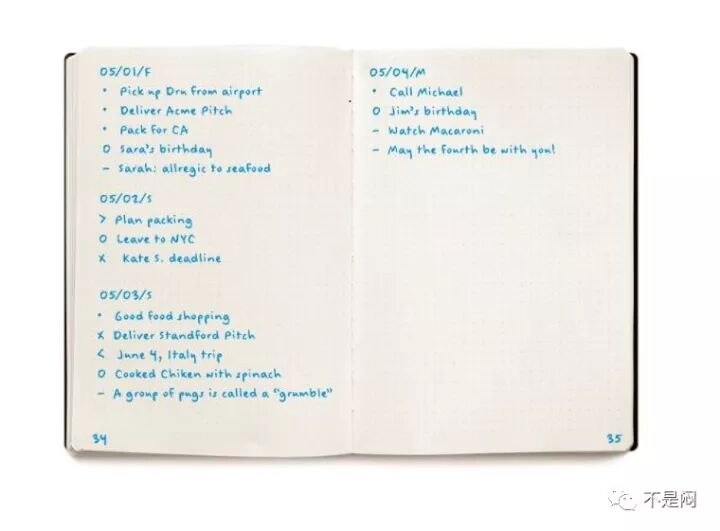 05/01/F
• Pick up Dru from airport
• Deliver Acme Pitch
• Pack for CA
O Sara's birthday
– Sarah: allregic to seafood
05/02/S
> Plan packing
O Leave to NYC
x Kate S. deadline
05/03/S
• Good food shopping
x Deliver Standford Pitch
< June 4, Italy trip
O Cooked Chiken with spinach
– A group of pugs is called a "grumble"
34
05/04/M
• Call Michael
O Jim's birthday
– Watch Macaroni
– May the fourth be with you!
35
不是闷